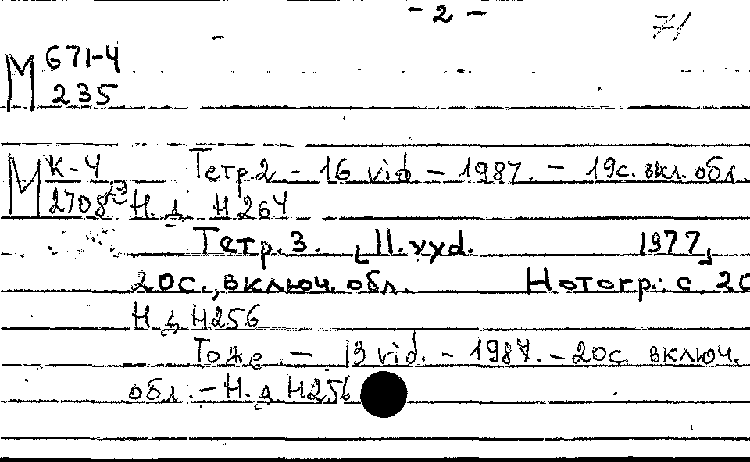 - 2 -
71
М 671-4
235
М К-4 Тетр 2 - 16 vid - 1987. - 19с. вкл. обл.
2708 Н. д. Н 264
Тетр. 3. [11. vyd. 1977]
20с., включ. обл. Нотогр.: с. 20
Н. д. Н256
Тоже - 13 vid. - 1987. - 20с включ.
обл. - Н. д. Н256